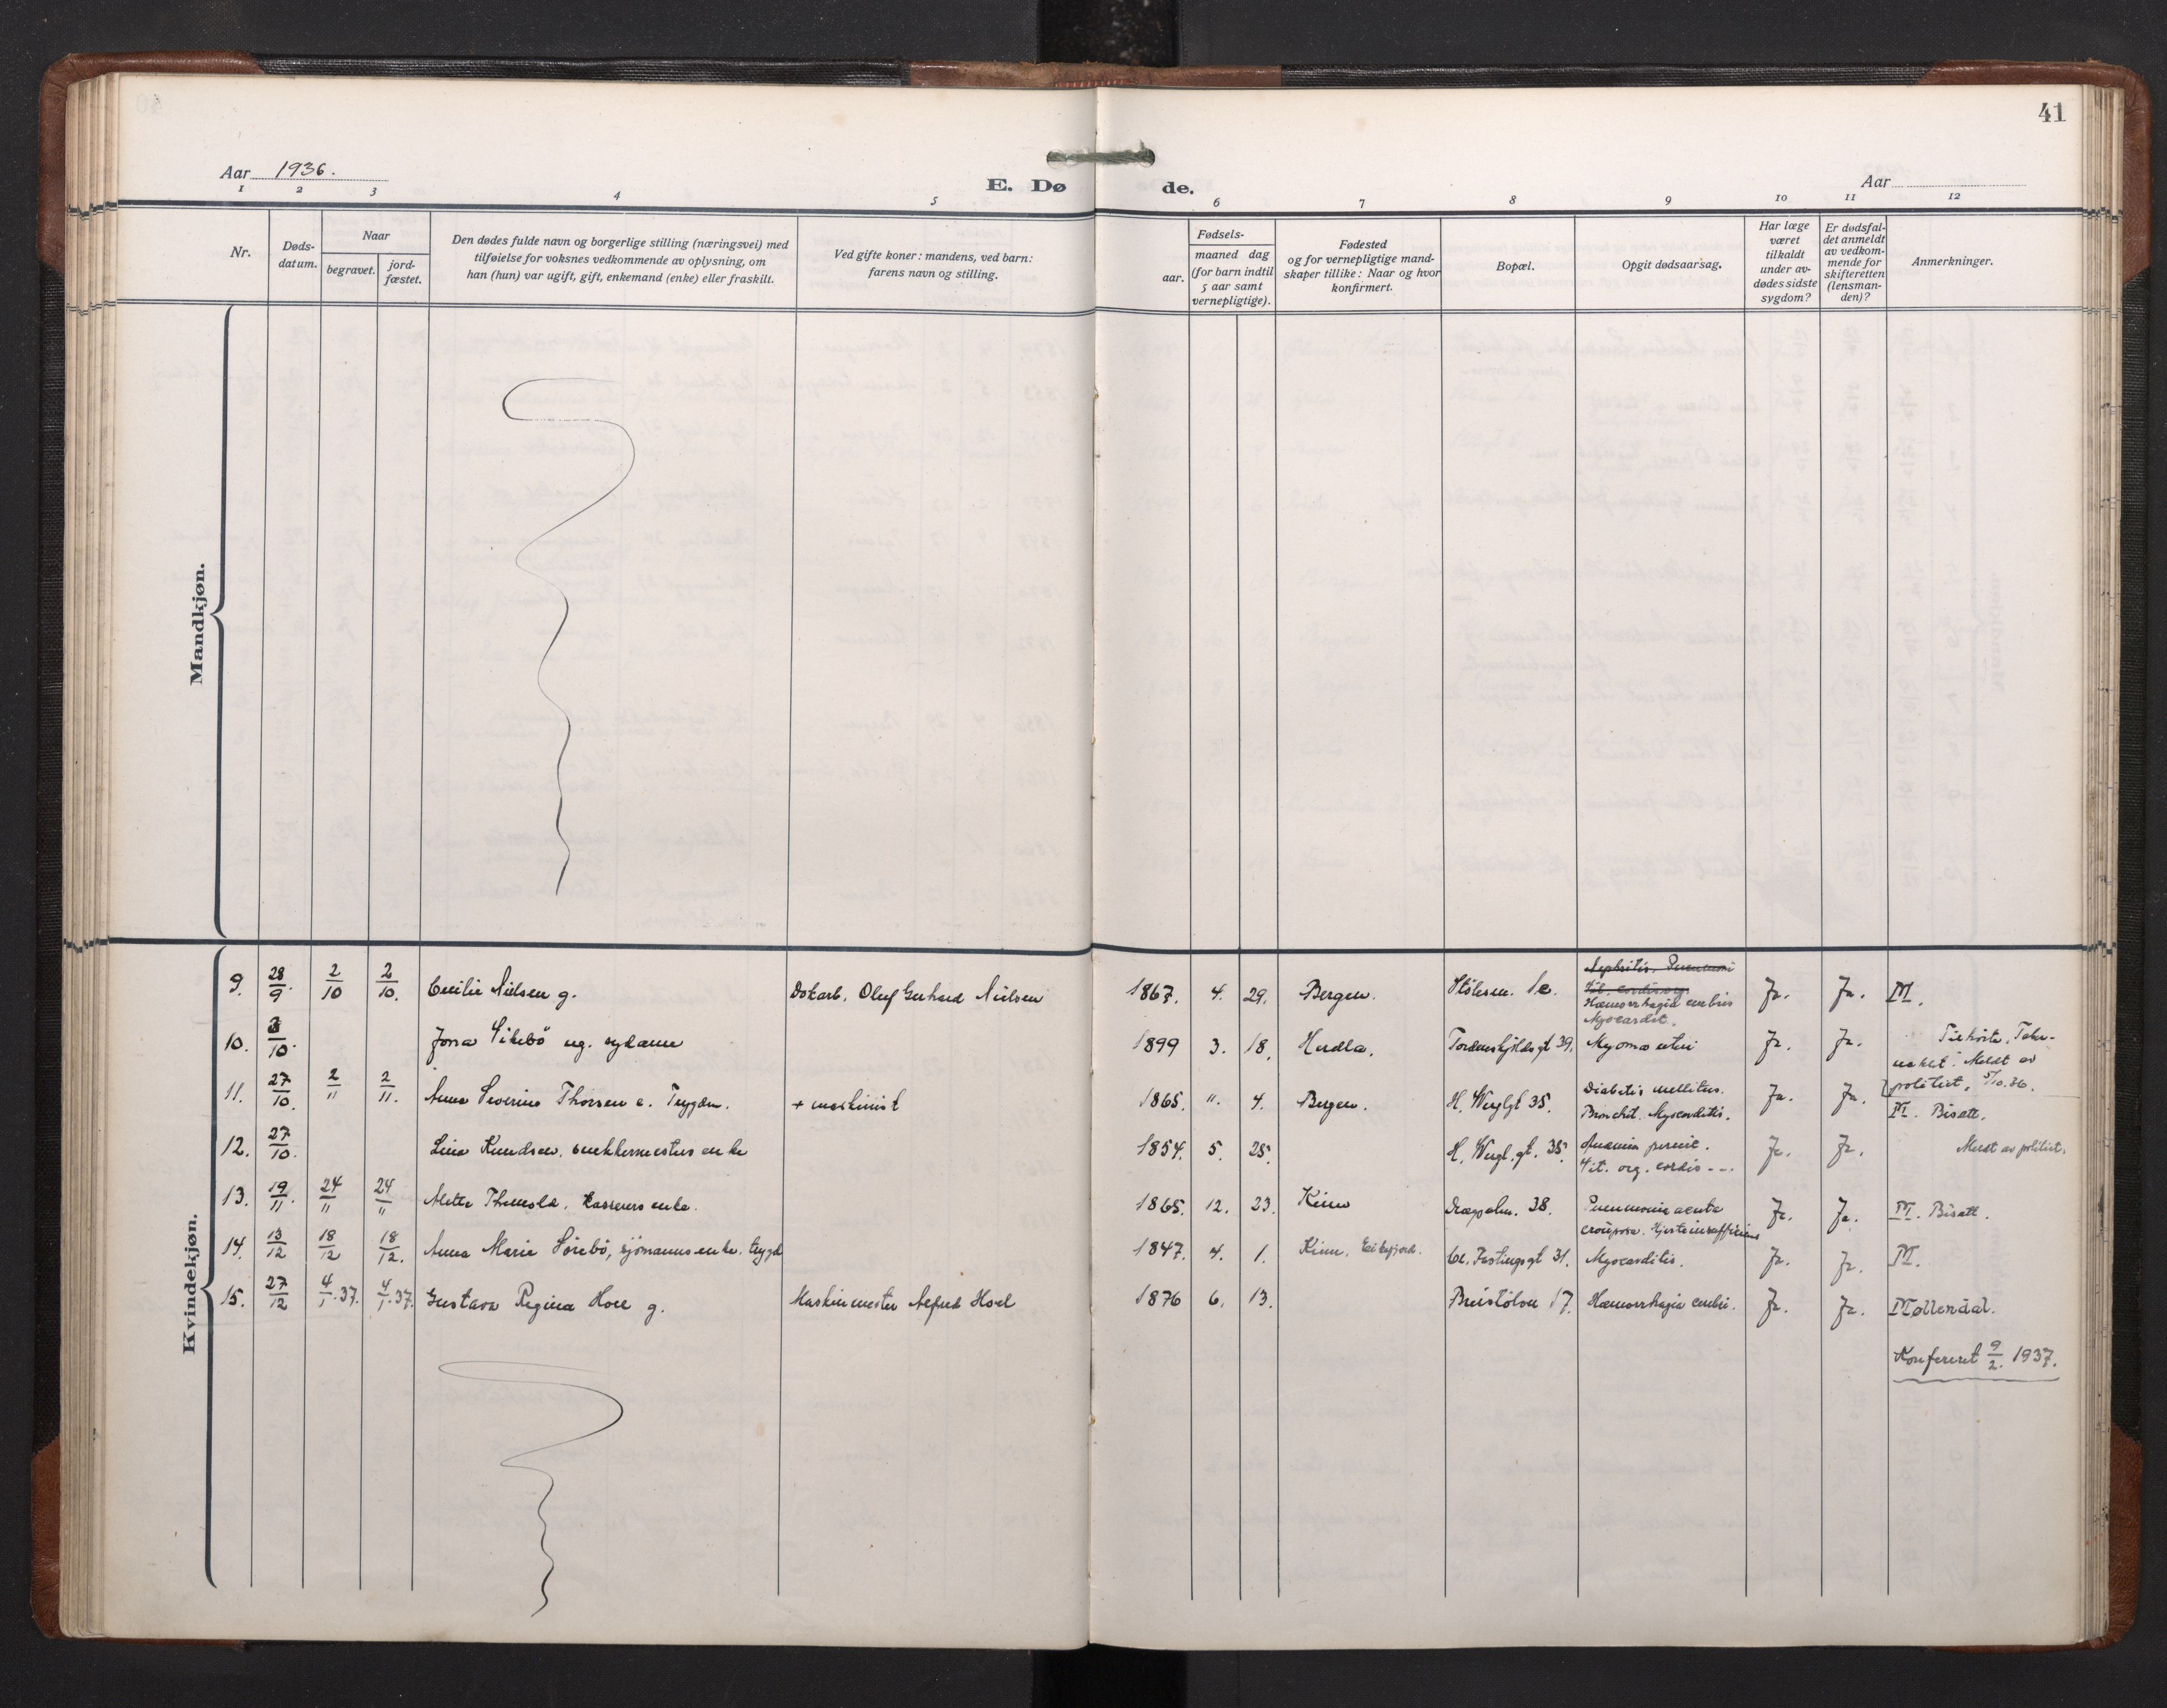 41
Aar 1936.
E. Dø de.
Aar
1 2 3 4 5 6 7 8 9 10 11 12
Nr.
Døds-
datum.
Naar
begravet.
jord-
fæstet.
Den dødes fulde navn og borgerlige stilling (næringsvei) med
tilføielse for voksnes vedkommende av oplysning, om
han (hun) var ugift, gift, enkemand (enke) eller fraskilt.
Ved gifte koner: mandens, ved barn:
farens navn og stilling.
Fødsels-
aar.
maaned dag
(for barn indtil
5 aar samt
vernepligtige).
Fødested
og for vernepligtige mand-
skaper tillike: Naar og hvor
konfirmert.
Bopæl.
Opgit dødsaarsag.
Har læge
været
tilkaldt
under av-
dødes sidste
sygdom?
Er dødsfal-
det anmeldt
av vedkom-
mende for
skifteretten
(lensman-
den)?
Anmerkninger.
Mandkjøn.
Kvindekjøn.
9. 28/9. 2/10 2/10. Cecilie Nielsen g. Dokarb. Oluf Gerhard Nielsen 1867. 4. 29. Bergen. Stölesm. 1e. Nephritis, Pneumoni
Hæmorrhagia cerebri
Myocardit. Ja. Ja. M.
10. 3/10. Jona ug. sydame 1899 3. 18. Herdla. Tordenskjoldsgt 39. Myoma uteri Ja. Ja.
naklet. Meldt av
politiet, 5/10.36.
11. 27/10. 2/11 2/11. Anna Severine Thorsen e. Trygden. + maskinist 1865. 11. 4. Bergen. H. Werglgt 35. Diabetis mellitus.
Bronchit. Myocarditis. Ja. Ja. M. Bisatt.
12. 27/10. Lina Knudsen, snekkermesters enke 1854. 5. 25. H. Wergl.gt. 35. Anæmia pernic.
Vit. org. cordis - - . Ja. Ja. Meldt av politiet.
13. 19/11. 24/11 24/11 Mette kasserers enke. 1865. 12. 23. Kinn Dræggealm. 38. Pneumonia acuta
crouposa. Hjerteinsufficiens Ja. Ja. M. Bisatt.
14. 13/12 18/12 18/12. Anna Marie Sörebö, sjömanns enke. trygd 1847. 4. 1. Kinn, Eikefjord. Chr. Festingsgt 31. Myocarditis. Ja. Ja. M.
15. 27/12 4/1.37. 4/1.37. Gustava Regina Hoel g. Maskinmester Alfred Hoel 1876 6. 13. Breistölen 17. Hæmorrhagia cerebri. Ja. Ja. Møllendal.
Konferert 9/2. 1937.